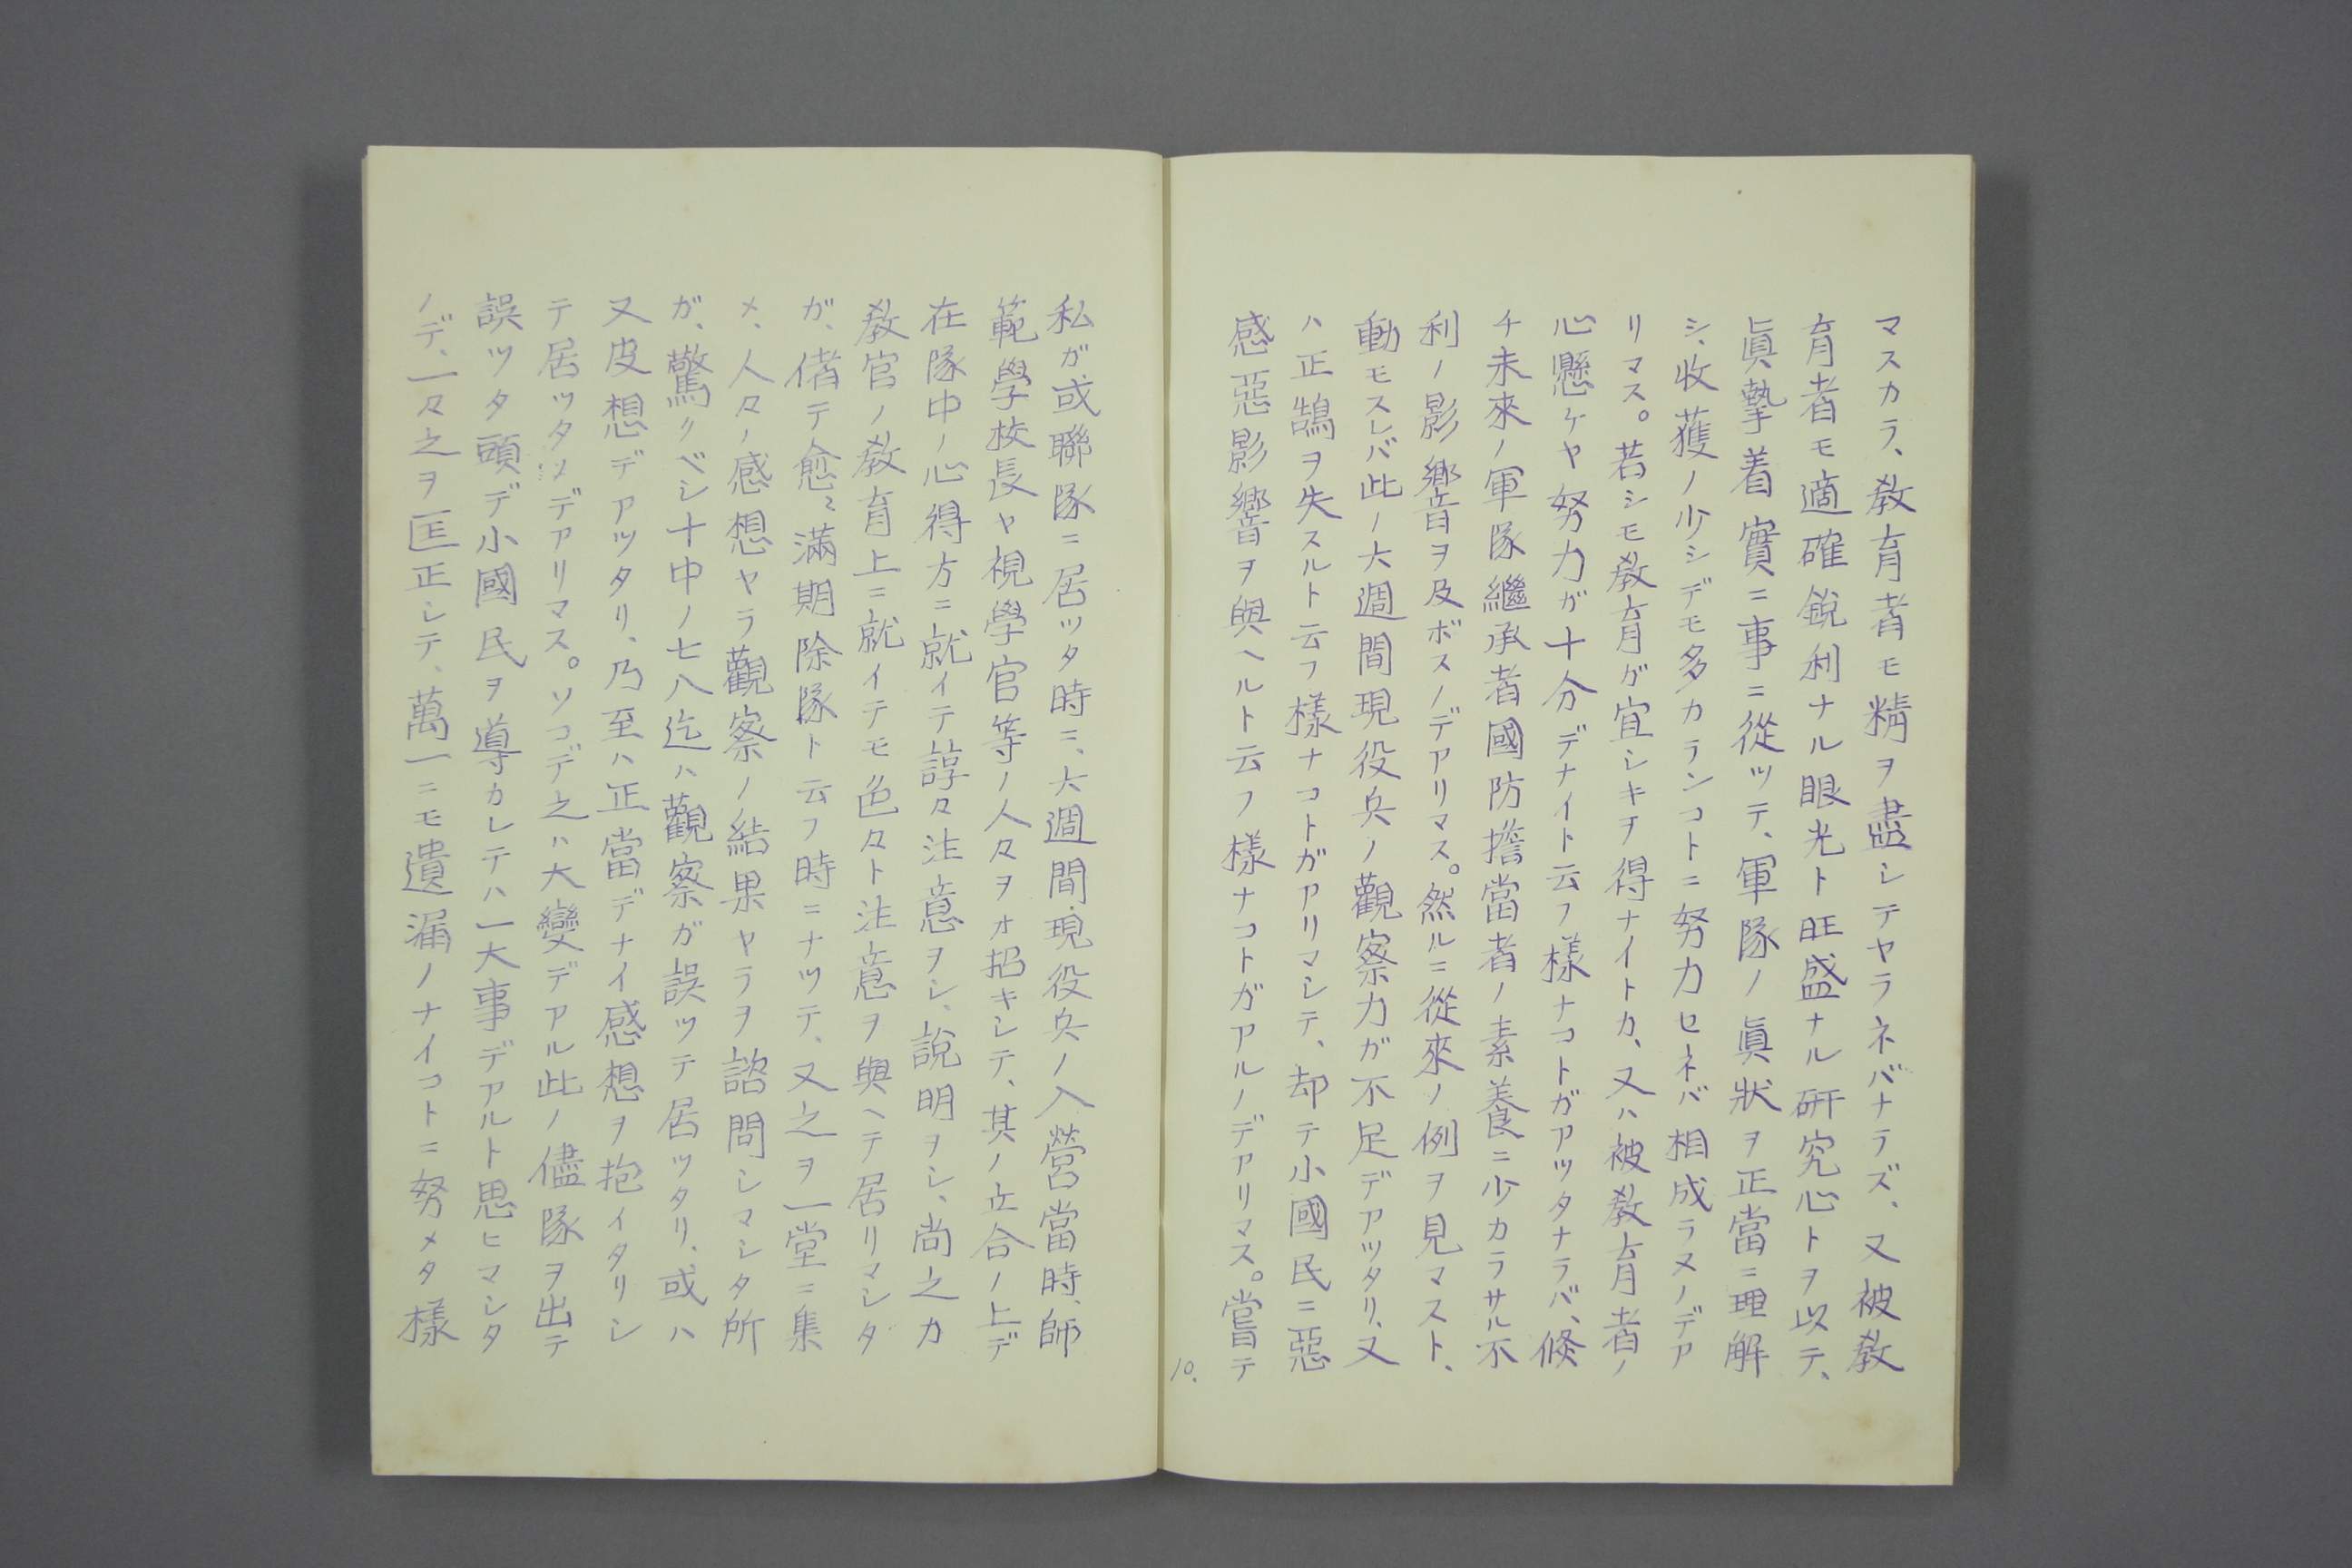 マスカラ、教育者モ精ヲ盡シテヤラネバナラズ、又被教
育者モ適確鋭利ナル眼光ト旺盛ナル研究心トヲ以テ、
眞摯着實ニ事ニ從ツテ、軍隊ノ眞狀ヲ正當ニ理解
シ、收獲ノ少シデモ多カランコトニ努力セネバ相成ラヌノデア
リマス。若シモ教育ガ宜シキヲ得ナイトカ、又ハ被教育者ノ
心懸ケヤ努力ガ十分デナイト云フ樣ナコトガアツタナラバ、倏
チ未來ノ軍隊繼承者國防擔當者ノ素養ニ少カラサル不
利ノ影響ヲ及ボスノデアリマス。然ルニ從來ノ例ヲ見マスト、
動モスレバ此ノ六週間現役兵ノ觀察力ガ不足デアツタリ、又
ハ正鵠ヲ失スルト云フ樣ナコトガアリマシテ、却テ小國民ニ惡
感惡影響ヲ與ヘルト云フ樣ナコトガアルノデアリマス。嘗テ
10.
私ガ或聯隊ニ居ツタ時ニ、六週間現役兵ノ入營當時、師
範學校長ヤ視學官等ノ人々ヲオ招キシテ、其ノ立合ノ上デ
在隊中ノ心得方ニ就イテ諄々注意ヲシ、說明ヲシ、尚之カ
教官ノ教育上ニ就イテモ色々ト注意ヲ與ヘテ居リマシタ
ガ、偖テ愈々滿期除隊ト云フ時ニナツテ、又之ヲ一堂ニ集
メ、人々ノ感想ヤラ觀察ノ結果ヤラヲ諮問シマシタ所
ガ、驚クベシ十中ノ七八迄ハ觀察ガ誤ツテ居ツタリ、或ハ
又皮想デアツタリ、乃至ハ正當デナイ感想ヲ抱イタリシ
テ居ツタノデアリマス。ソコデ之ハ大變デアル此ノ儘隊ヲ出テ
誤ツタ頭デ小國民ヲ導カレテハ一大事デアルト思ヒマシタ
ノデ、一々之ヲ匡正シテ、萬一ニモ遺漏ノナイコトニ努メタ樣